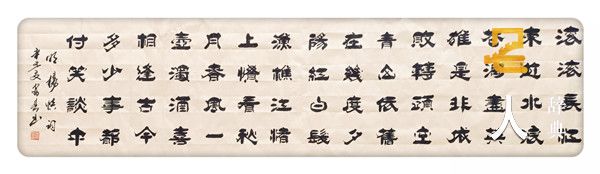 滾滾長江
東逝水浪
花淘盡英
雄是非成
敗轉頭空
青山依舊
在幾度夕
陽紅白髮
漁樵江渚
上慣看秋
月春風一
壺濁酒喜
相逢古今
多少事都
付笑談中
明楊慎詞
人
辞典